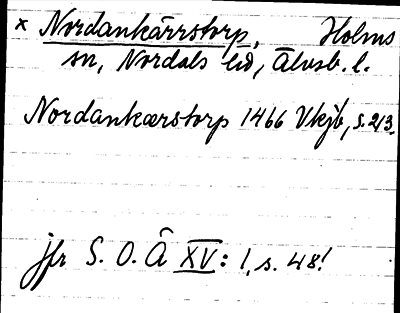 × Nordankärrstorp, Holms
sn, Nordals hd, Älvsb. l.
Nordankærstorp 1466 Vkjb, s. 213.
jfr S. O. Ä XV: 1, s. 48!